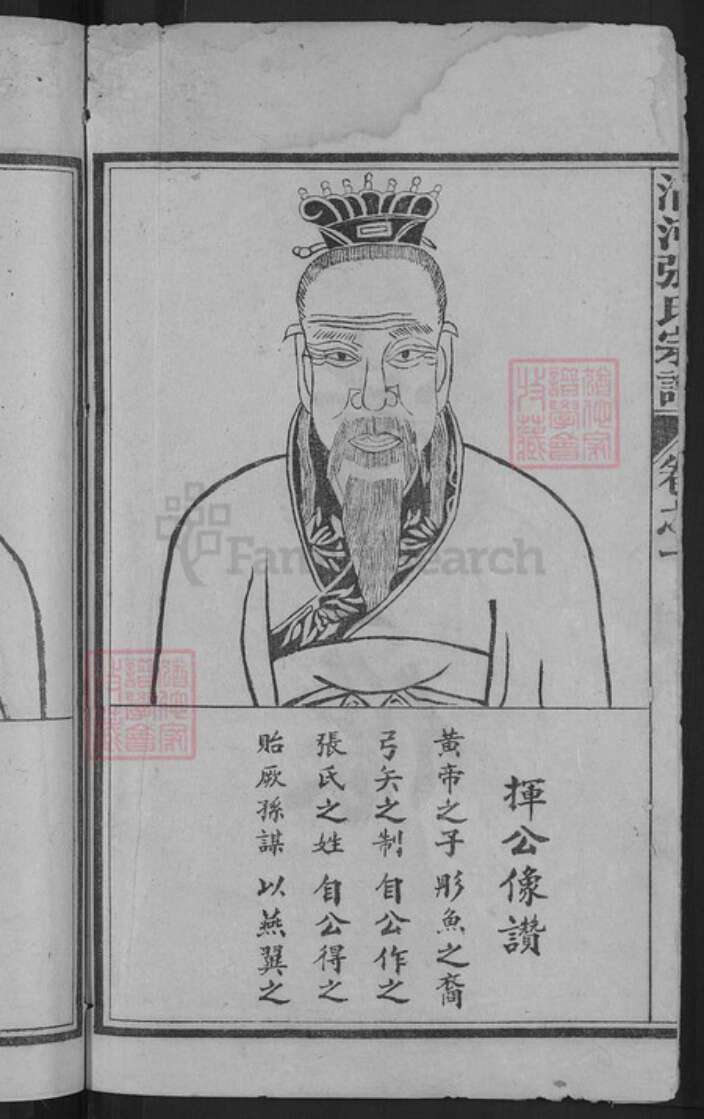 清河張氏宗譜
卷之一
揮公像讚
黃帝之子 彤魚之裔
弓矢之制 自公作之
張氏之姓 自公得之
貽厥孫謀 以燕翼之
FamilySearch